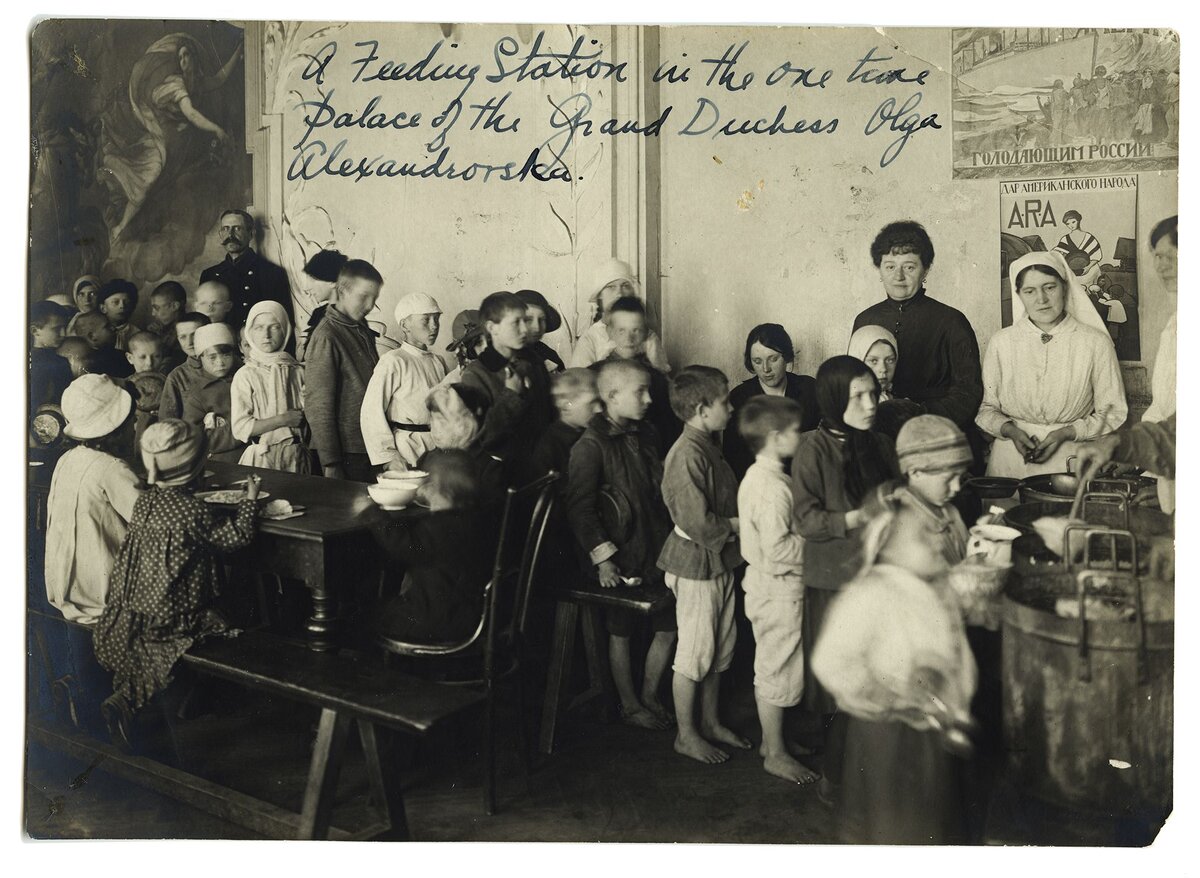 A Feeding Station in the one time
palace of the Grand Duchess Olga
Alexandrovska.
ГОЛОДАЮЩИМ РОССИИ
ДАР АМЕРИКАНСКОГО НАРОДА
ARA